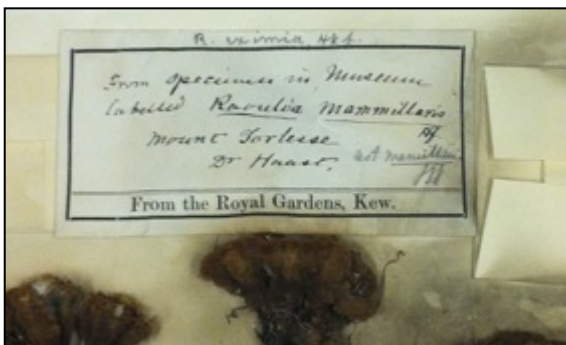 R. eximia, Hk f.
From specimens in Museum
labelled Raoulia Mammillaris
Mount Torlesse
Dr Haast.
not mamillaris
From the Royal Gardens, Kew.